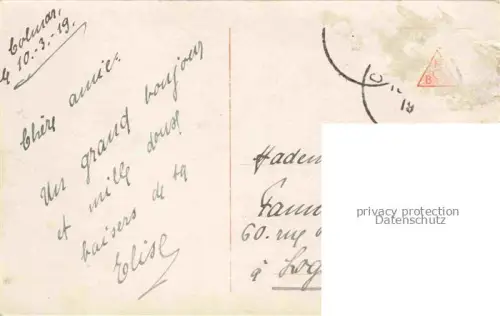 Colmar,
le 10.-3.-19.
Chère amie.
Un grand bonjour
et mille doux
baisers de ta
Elise
Madem
Fann
60. rue
à Log
privacy protection
Datenschutz